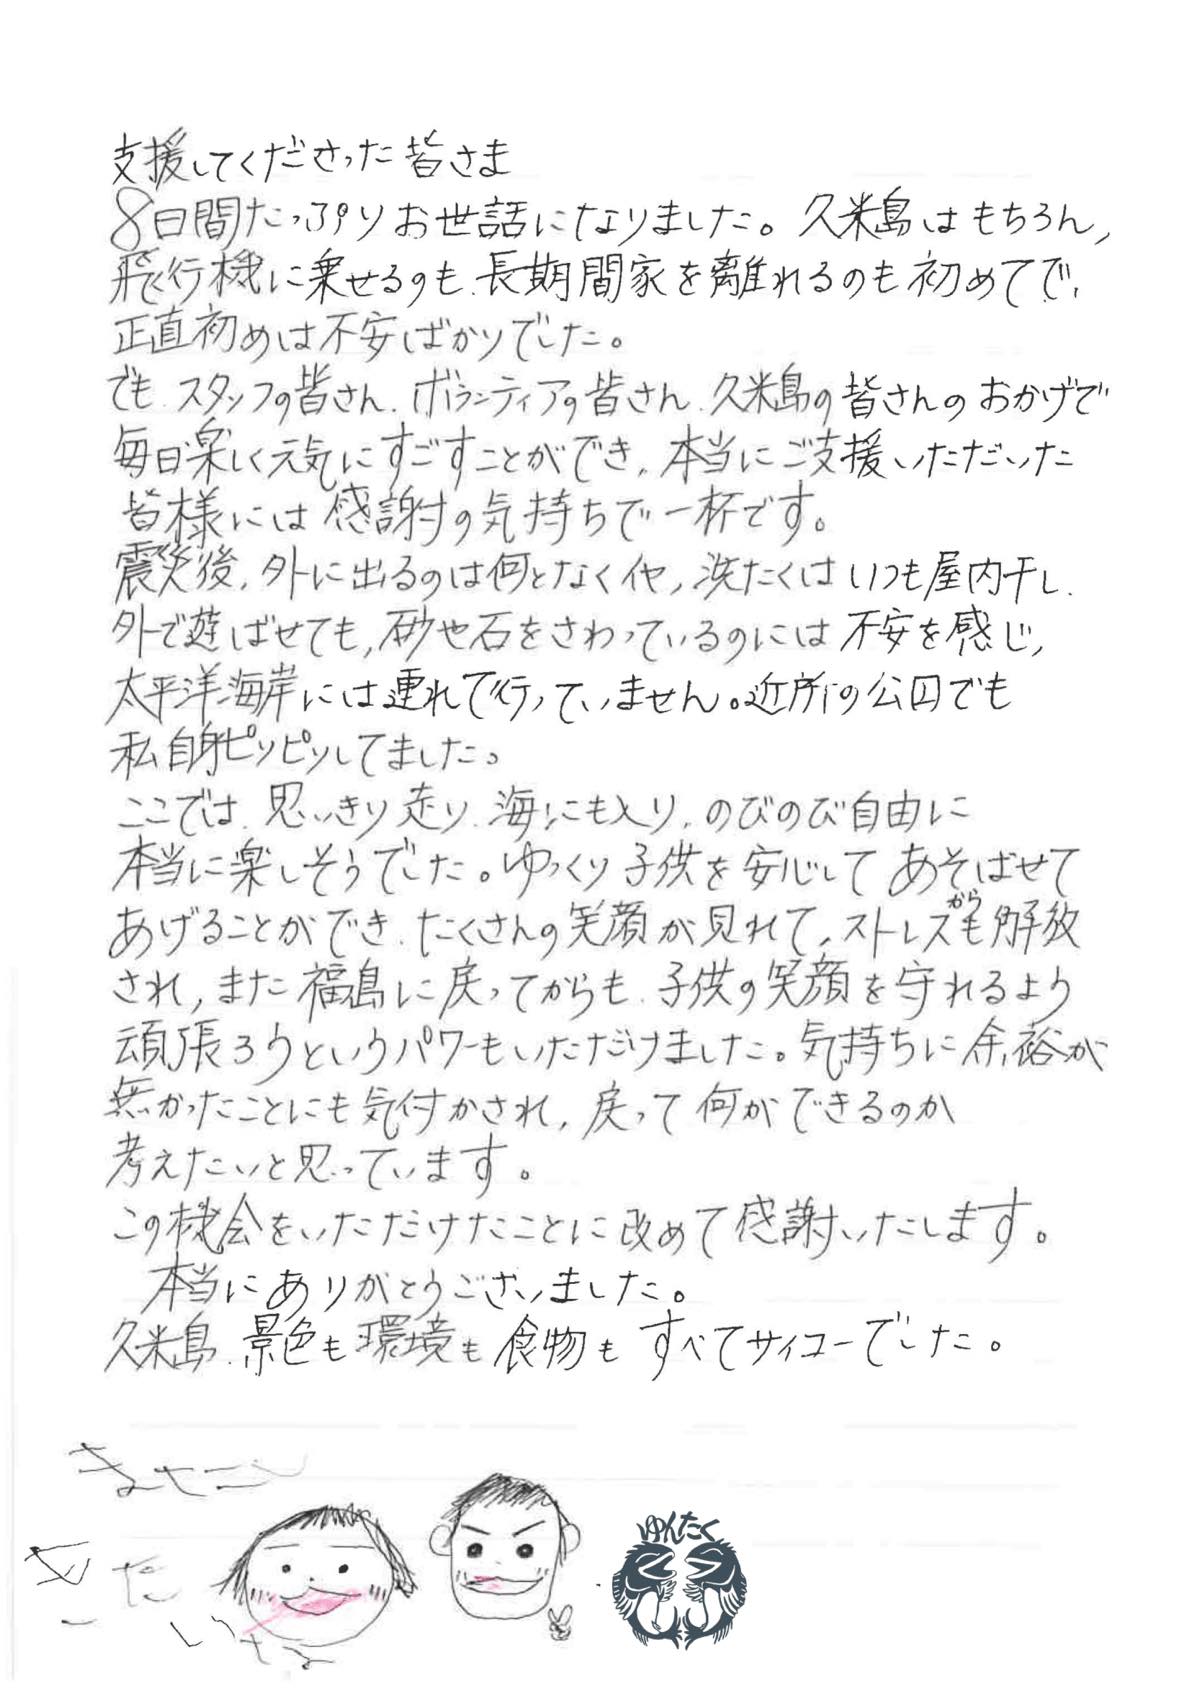 支援してくださった皆さま
8日間たっぷりお世話になりました。久米島はもちろん,
飛行機に乗せるのも、長期間家を離れるのも初めてで、
正直初めは不安ばかりでした。
でも、スタッフの皆さん、ボランティアの皆さん、久米島の皆さんのおかげで
毎日楽しく元気にすごすことができ、本当にご支援いただいた
皆様には感謝の気持ちで一杯です。
震災後,外に出るのは何となくイヤ,洗たくはいつも屋内干し、
外で遊ばせても,砂や石をさわっているのには不安を感じ,
太平洋海岸には連れて行っていません。近所の公園でも
私自身ピリピリしてました。
ここでは、思いきり走り、海にも入り、のびのび自由に
本当に楽しそうでした。ゆっくり子供を安心してあそばせて
あげることができ、たくさんの笑顔が見れて、ストレスからも解放
され,また福島に戻ってからも、子供の笑顔を守れるよう
頑張ろうというパワーもいただけました。気持ちに余裕が
無かったことにも気付かされ,戻って何ができるのか
考えたいと思っています。
この機会をいただけたことに改めて感謝いたします。
本当にありがとうございました。
久米島、景色も環境も食物もすべてサイコーでした。
ゆんたく